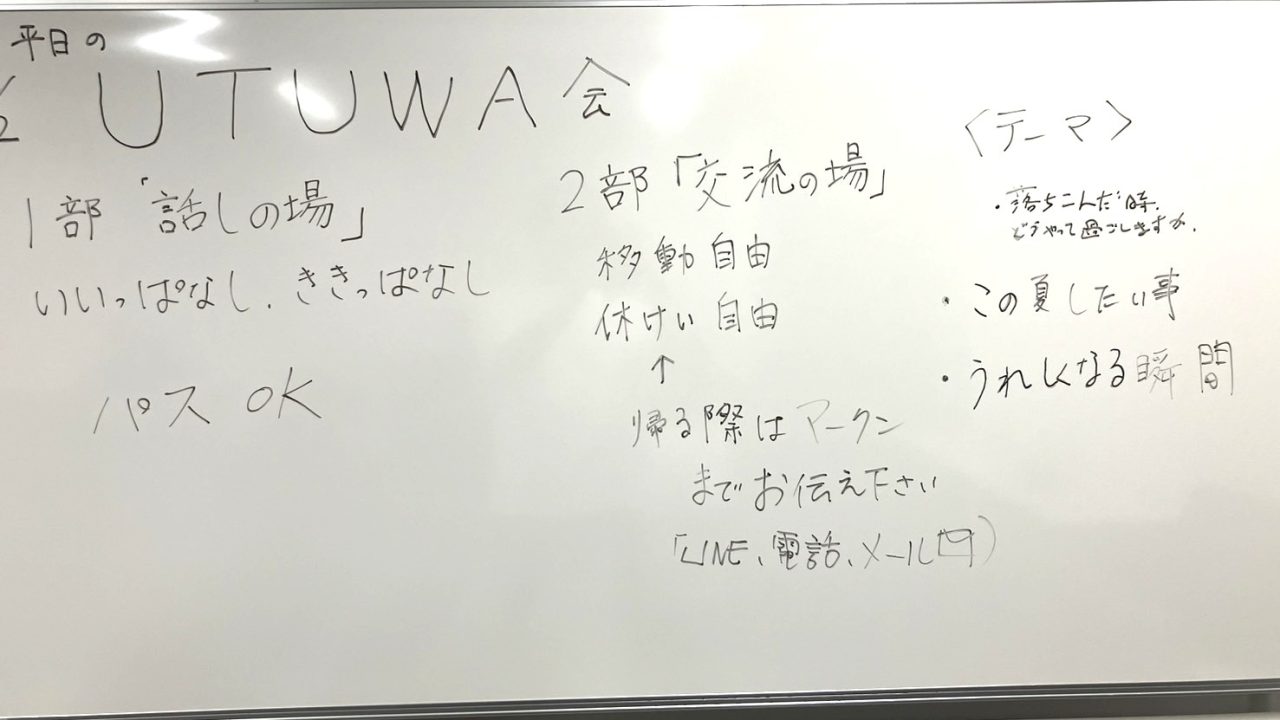 平日の
UTUWA会
1部「話しの場」
いいっぱなし、ききっぱなし
パス OK
2部「交流の場」
移動自由
休けい自由
↑
帰る際はマークン
までお伝え下さい
「LINE、電話、メール
〈テーマ〉
・落ちこんだ時、
どうやって過ごしますか。
・この夏したい事
・うれしくなる瞬間